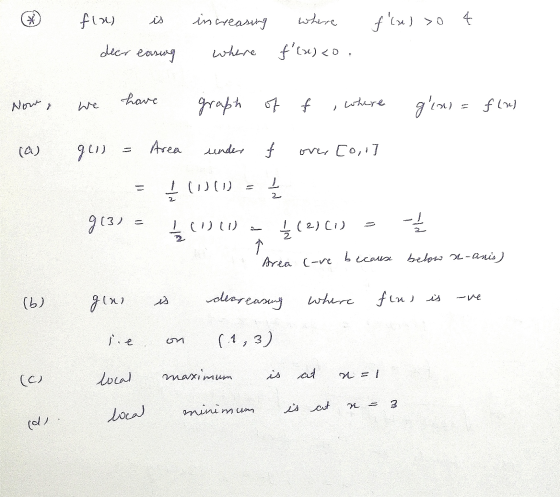 (*) f(x) is increasing where f'(x) > 0 &
decreasing where f'(x) < 0 .
Now, we have graph of f , where g'(x) = f(x)
(a) g(1) = Area under f over [0,1]
= 1/2 (1)(1) = 1/2
g(3) = 1/2 (1)(1) - 1/2 (2)(1) = -1/2
↑
Area (-ve because below x-axis)
(b) g(x) is decreasing where f(x) is -ve
i.e on (1,3)
(c) local maximum is at x = 1
(d). local minimum is at x = 3